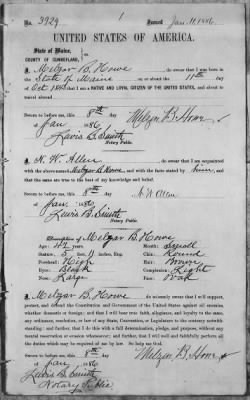 No. 3929 Issued Jan. 11, 1886.
UNITED STATES OF AMERICA.
State of Maine,
COUNTY OF CUMBERLAND,
I, Melzar B. Howe, do swear that I was born in the
State of Maine on or about the 11th day
of Oct 1843 that I am a NATIVE AND LOYAL CITIZEN OF THE UNITED STATES, and about to
travel abroad
Sworn to before me, this 8th day
of Jan 1886 Melzar B. Howe
Lewis B. Smith
Notary Public.
I, N. W. Allen do swear that I am acquainted
with the above-named Melzar B. Howe, and with the facts stated by him, and
that the same are true to the best of my knowledge and belief.
Sworn to before me, this 8th day
of Jan. 1886 N. W. Allen
Lewis B. Smith
Notary Public.
Description of Melzar B. Howe
Age: 42 years Mouth: Small
Stature: 5 feet 11 inches, Eng. Chin: Round
Forehead: High Hair: Brown
Eyes: Black Complexion: Light
Nose: Large Face:
I, Melzar B. Howe do solemnly swear that I will support,
protect, and defend the Constitution and Government of the United States against all enemies,
whether domestic or foreign; and that I will bear true faith, allegiance, and loyalty to the same,
any ordinance, resolution, or law of any State, Convention, or Legislature to the contrary notwith-
standing; and further, that I do this with a full determination, pledge, and purpose, without any
mental reservation or evasion whatsoever; and further, that I will well and faithfully perform all
the duties which may be required of me by law. So help me God.
Sworn to before me, this 8th day
of Jan 1886 Melzar B. Howe
Lewis B. Smith
Notary Public